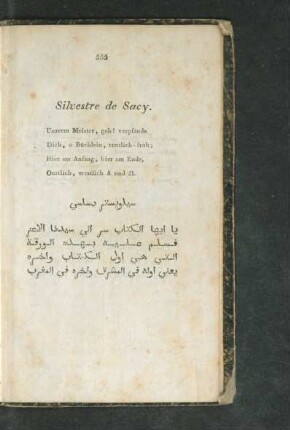 555
Silvestre de Sacy.
Unserm Meister, geh! verpfände
Dich, o Büchlein, traulich-froh;
Hier am Anfang, hier am Ende,
Oestlich, westlich A und Ω.
سيلوستر دساسى
يا ايها الكتاب سر الى سيدنا الاعز
فسلم عليه بهذه الورقة
التى هى اول الكتاب واخره
يعنى اوله فى المشرق واخره فى المغرب